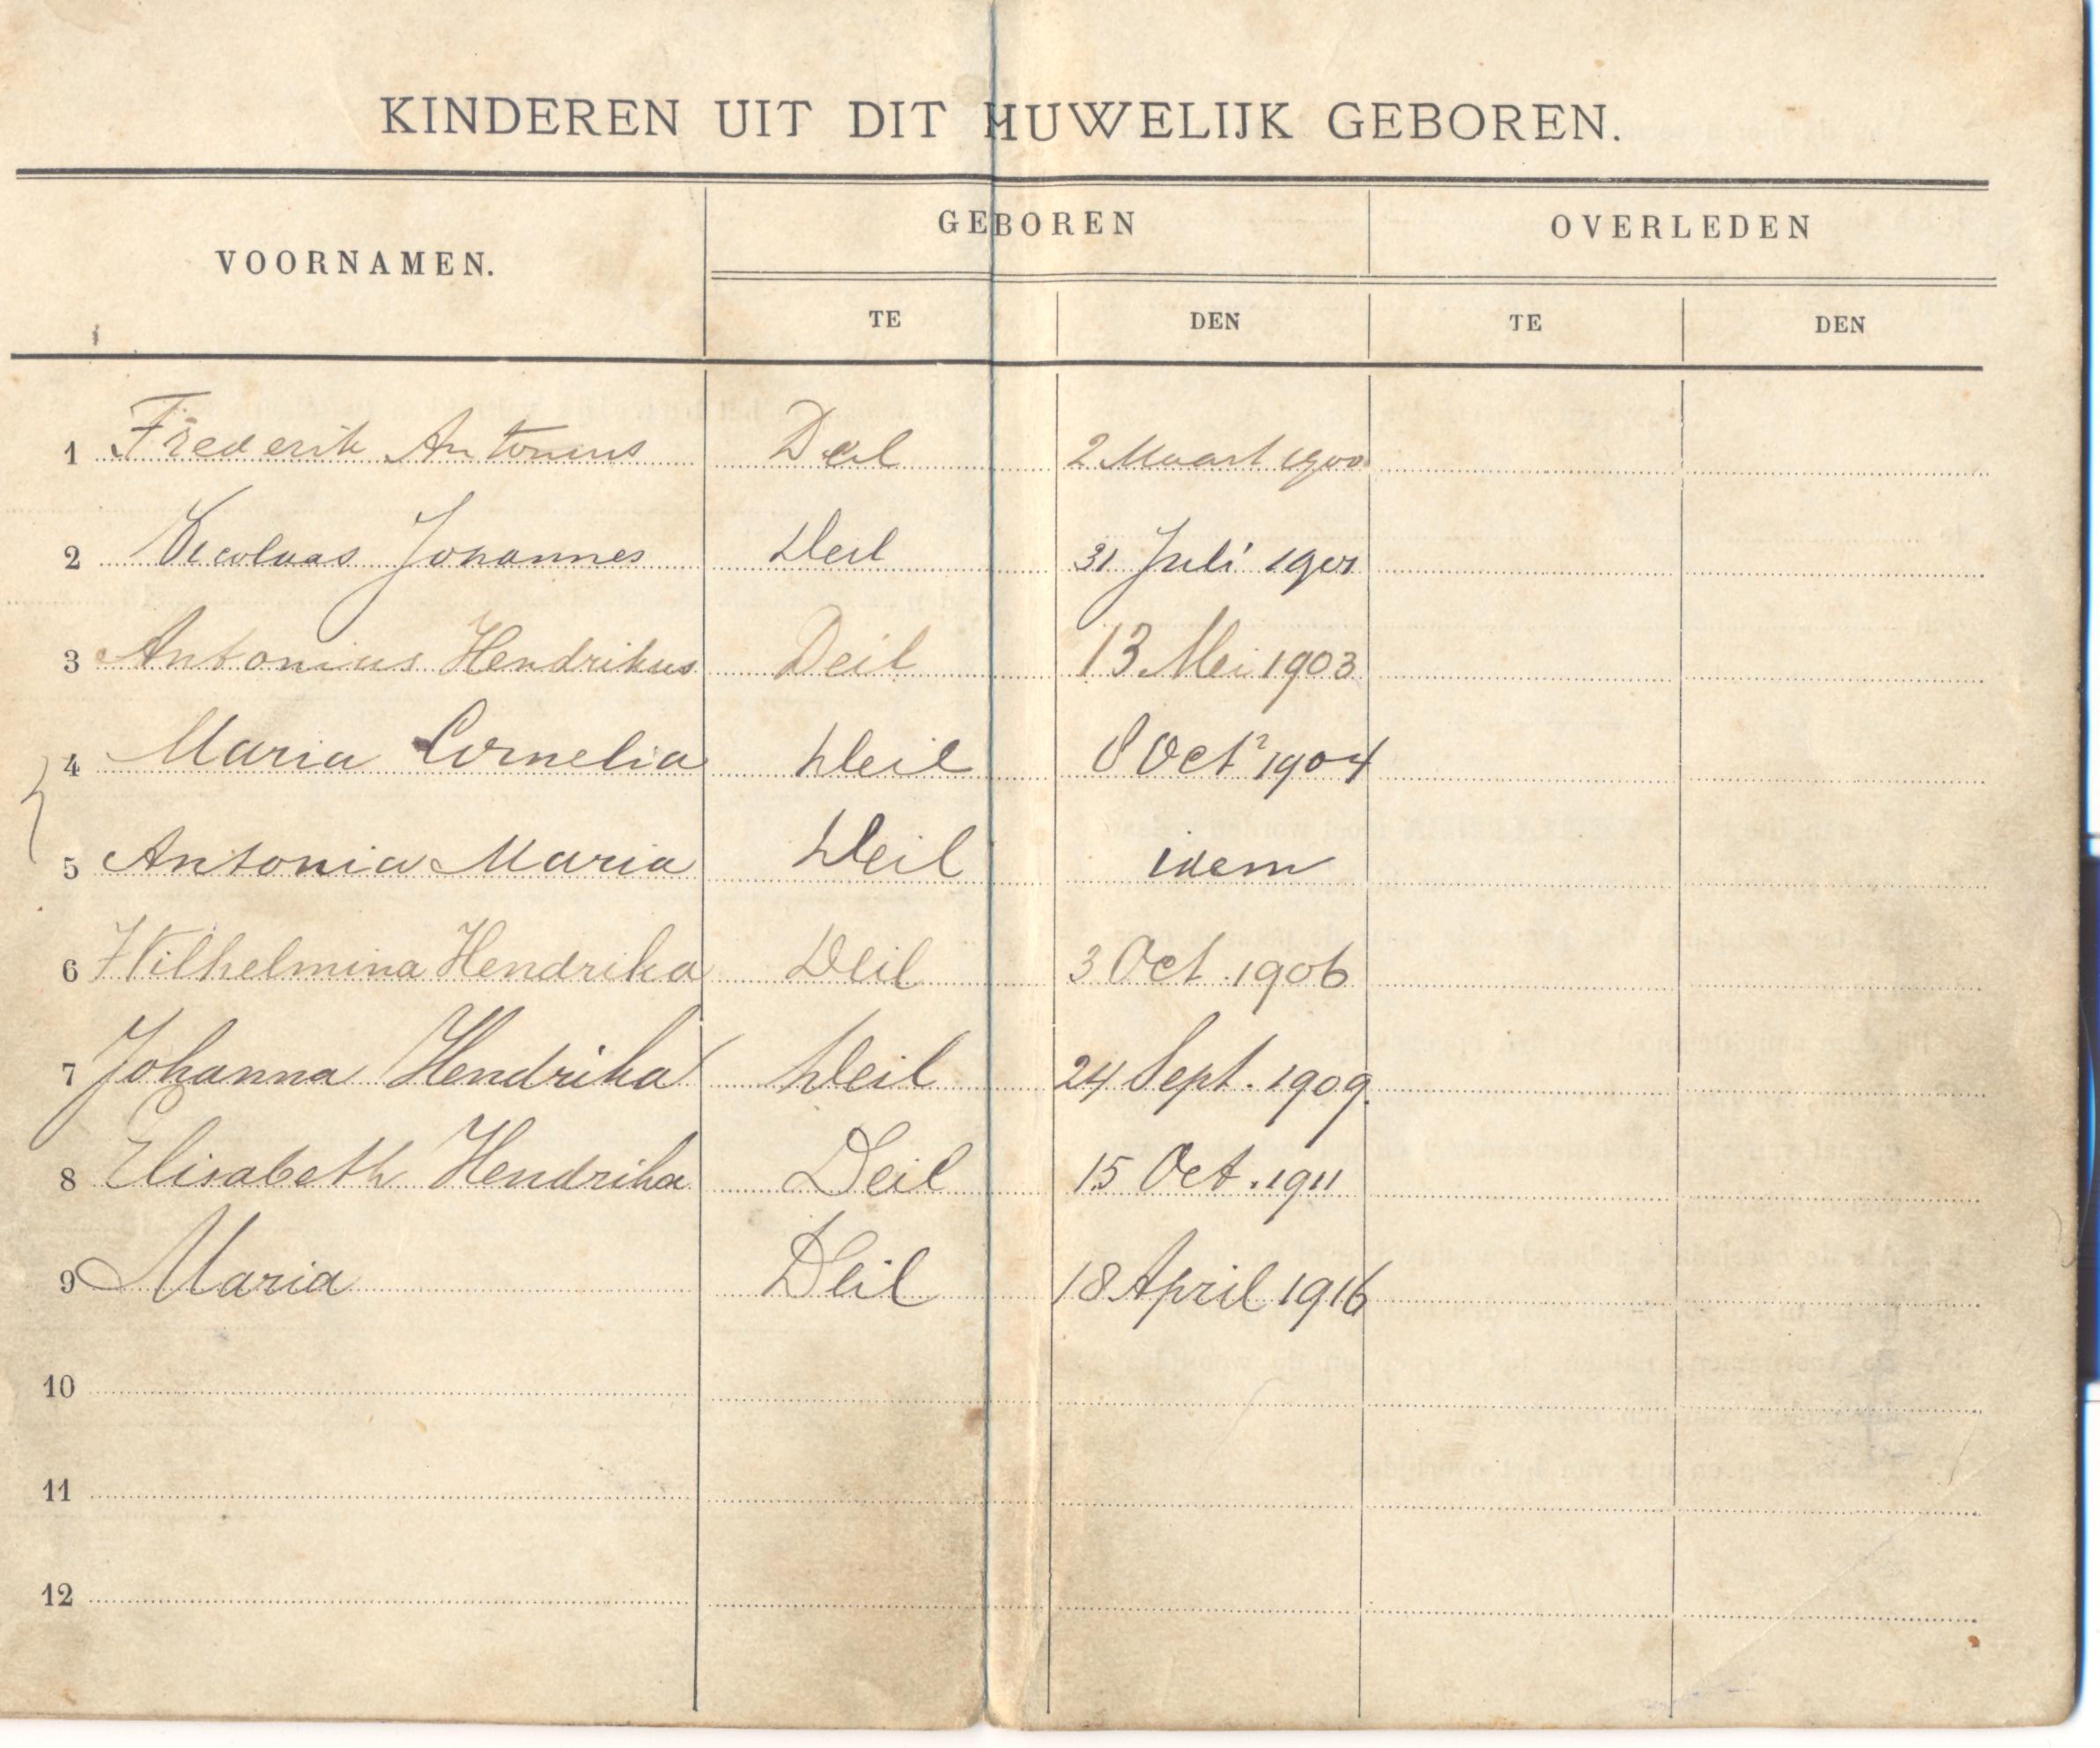 KINDEREN UIT DIT HUWELIJK GEBOREN.
VOORNAMEN. GEBOREN OVERLEDEN
TE DEN TE DEN
1 Frederik Antonius Deil 2 Maart 1900
2 Nicolaas Johannes Deil 31 Juli 1901
3 Antonius Hendrikus Deil 13 Mei 1903
4 Maria Cornelia Deil 8 Oct 1904
5 Antonia Maria Deil idem
6 Wilhelmina Hendrika Deil 3 Oct. 1906
7 Johanna Hendrika Deil 24 Sept. 1909.
8 Elisabeth Hendrika Deil 15 Oct. 1911
9 Maria Deil 18 April 1916
10
11
12